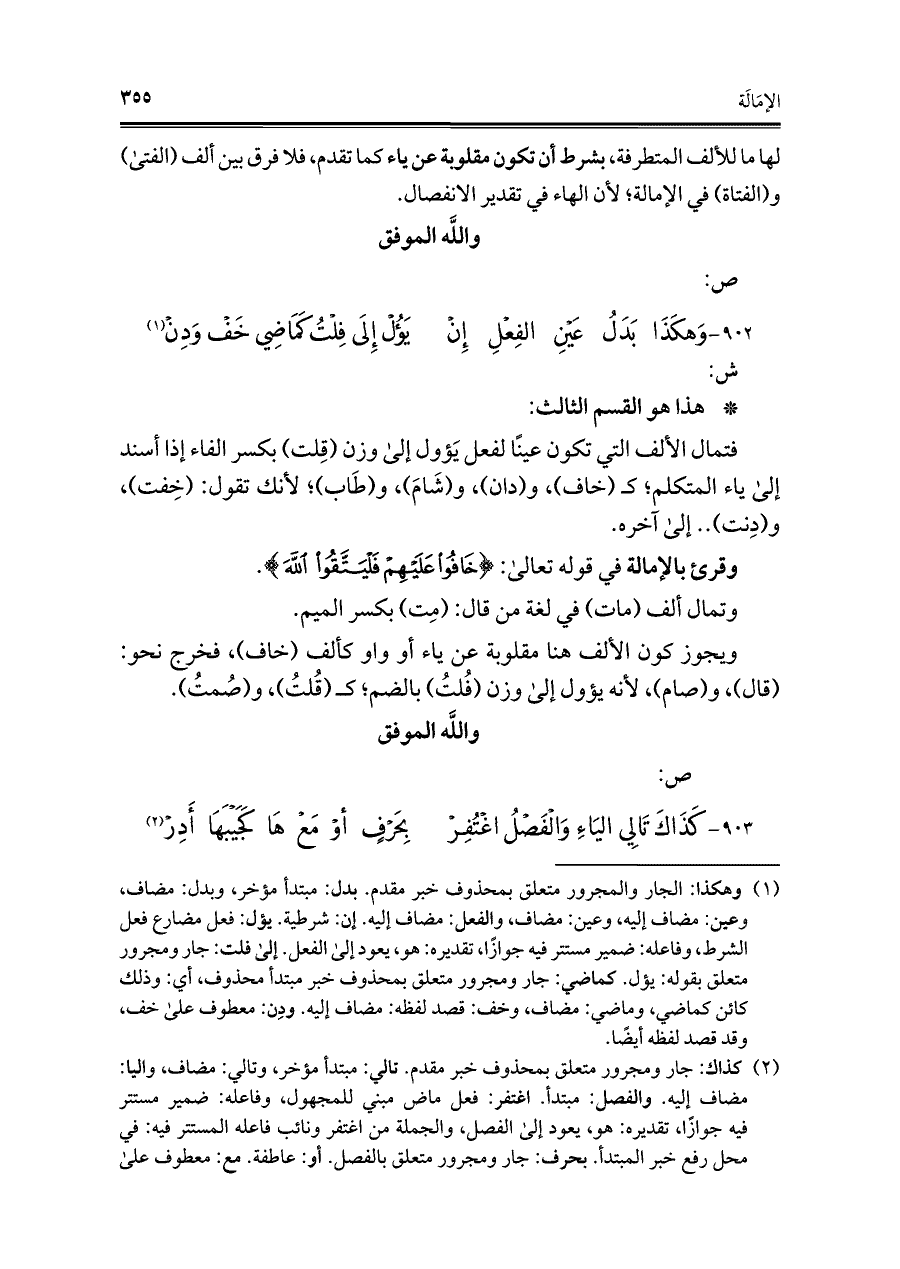 الإمَالَة ٣٥٥
لها ما للألف المتطرفة، بشرط أن تكون مقلوبة عن ياء كما تقدم، فلا فرق بين ألف (الفتىٰ)
و(الفتاة) في الإمالة؛ لأن الهاء في تقدير الانفصال.
واللَّه الموفق
ص:
٩٠٢-وَهكَذَا بَدَلُ عَيْنِ الفِعْلِ إِنْ يَؤُلْ إِلَى فِلْتُ كَمَاضِي خَفْ وَدِنْ(١)
ش:
* هذا هو القسم الثالث:
فتمال الألف التي تكون عينًا لفعل يَؤول إلىٰ وزن (فِلت) بكسر الفاء إذا أسند
إلىٰ ياء المتكلم؛ كـ (خاف)، و(دان)، و(شَامَ)، و(طَاب)؛ لأنك تقول: (خِفت)،
و(دِنت).. إلىٰ آخره.
وقرئ بالإمالة في قوله تعالىٰ: ﴿خَافُواْ عَلَيْهِمْ فَلْيَتَّقُواْ ٱللَّهَ﴾.
وتمال ألف (مات) في لغة من قال: (مِت) بكسر الميم.
ويجوز كون الألف هنا مقلوبة عن ياء أو واو كألف (خاف)، فخرج نحو:
(قال)، و(صام)، لأنه يؤول إلىٰ وزن (فُلتُ) بالضم؛ كـ (قُلتُ)، و(صُمتُ).
واللَّه الموفق
ص:
٩٠٣-كَذَاكَ تَالِي اليَاءِ وَالْفَصْلُ اغْتُفِرْ بِحَرْفٍ أوْ مَعْ هَا كَجَيْبَهَا أَدِرْ(٢)
(١) وهكذا: الجار والمجرور متعلق بمحذوف خبر مقدم. بدل: مبتدأ مؤخر، وبدل: مضاف،
وعين: مضاف إليه، وعين: مضاف، والفعل: مضاف إليه. إن: شرطية. يؤل: فعل مضارع فعل
الشرط، وفاعله: ضمير مستتر فيه جوازًا، تقديره: هو، يعود إلىٰ الفعل. إلىٰ فلت: جار ومجرور
متعلق بقوله: يؤل. كماضي: جار ومجرور متعلق بمحذوف خبر مبتدأ محذوف، أي: وذلك
كائن كماضي، وماضي: مضاف، وخف: قصد لفظه: مضاف إليه. ودِن: معطوف علىٰ خف،
وقد قصد لفظه أيضًا.
(٢) كذاك: جار ومجرور متعلق بمحذوف خبر مقدم. تالي: مبتدأ مؤخر، وتالي: مضاف، واليا:
مضاف إليه. والفصل: مبتدأ. اغتفر: فعل ماض مبني للمجهول، وفاعله: ضمير مستتر
فيه جوازًا، تقديره: هو، يعود إلىٰ الفصل، والجملة من اغتفر ونائب فاعله المستتر فيه: في
محل رفع خبر المبتدأ. بحرف: جار ومجرور متعلق بالفصل. أو: عاطفة. مع: معطوف علىٰ